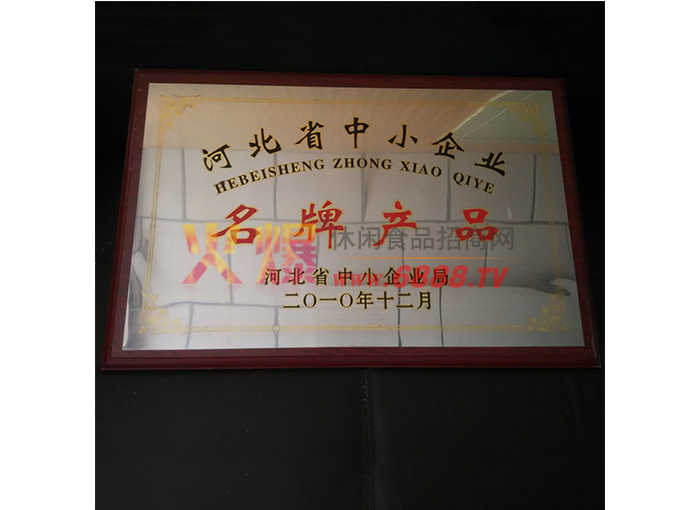 河北省中小企业
HEBEISHENG ZHONG XIAO QIYE
名牌产品
火爆 休闲食品招商网
www.6888.TV
河北省中小企业局
二〇一〇年十二月